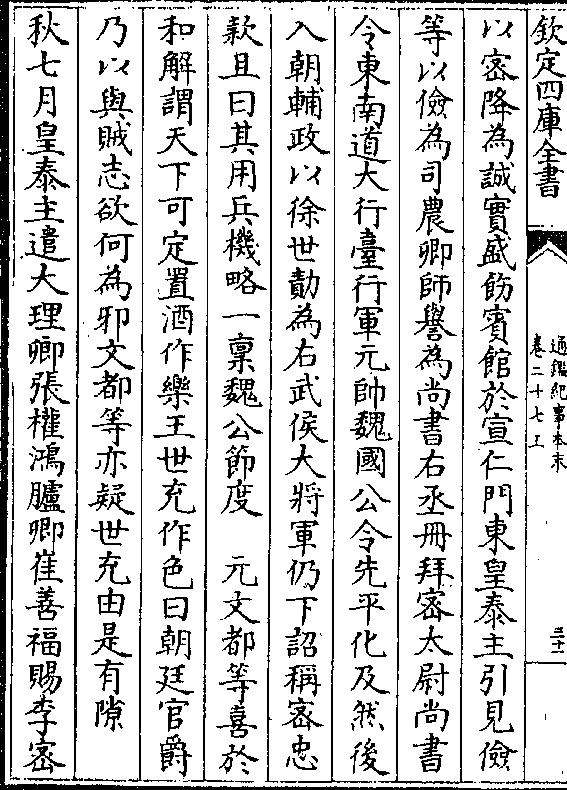 欽定四庫全書
通鑑紀事本末
卷二十七上
三十
以密降為誠實盛飭賓館於宣仁門東皇泰主引見儉
等以儉為司農卿師譽為尚書右丞冊拜密太尉尚書
令東南道大行臺行軍元帥魏國公令先平化及然後
入朝輔政以徐世勣為右武侯大將軍仍下詔稱密忠
欵且曰其用兵機略一稟魏公節度　元文都等喜於
和解謂天下可定置酒作樂王世充作色曰朝廷官爵
乃以與賊志欲何為邪文都等亦疑世充由是有隙
秋七月皇泰主遣大理卿張權鴻臚卿崔善福賜李密